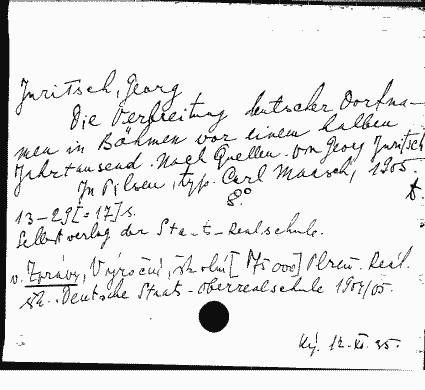 Juritsch, Georg
Die Verbreitung deutscher Dorfna-
men in Böhmen vor einem halben
Jahrtausend. Nach Quellen. Von Georg Juritsch
In Pilsen, typ. Carl Maasch, 1905.
8° 
13-29 [= 17] s.
Selbstverlag der Staats-Realschule.
v. Zprávy, Výroční, školní [ ] Plzeň. Reál.
šk. Deutsche Staats-oberrealschule 1904/05.
12. XI. 35.